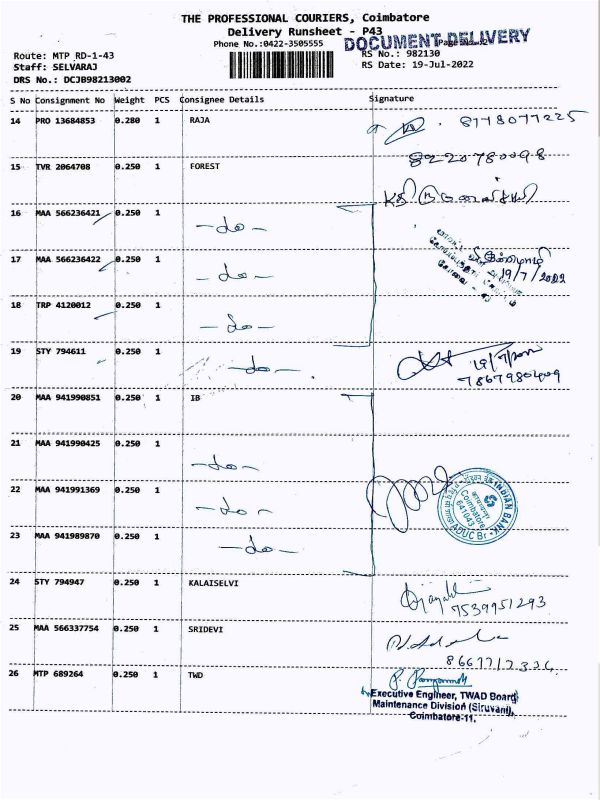 THE PROFESSIONAL COURIERS, Coimbatore
Delivery Runsheet - P43
Phone No.:0422-3505555
DOCUMENT DELIVERY
Route: MTP RD-1-43
RS No.: 982130
Staff: SELVARAJ
RS Date: 19-Jul-2022
DRS No.: DCJB98213002
S No Consignment No Weight PCS Consignee Details Signature
14 PRO 13684853 0.280 1 RAJA 8778077225
15 TVR 2064708 0.250 1 FOREST 8220780098
16 MAA 566236421 0.250 1 -do-
17 MAA 566236422 0.250 1 -do- 19/7/2022
18 TRP 4120012 0.250 1 -do-
19 STY 794611 0.250 1 -do- 19/7/2022
7867980409
20 MAA 941990851 0.250 1 IB
21 MAA 941990425 0.250 1 -do-
22 MAA 941991369 0.250 1 -do-
INDIAN BANK
Coimbatore
641043
AUUC Br.
23 MAA 941989870 0.250 1 -do-
24 STY 794947 0.250 1 KALAISELVI
7539951293
25 MAA 566337754 0.250 1 SRIDEVI
26 MTP 689264 0.250 1 TWD
Executive Engineer, TWAD Board
Maintenance Division (Siruvani),
Coimbatore-11.